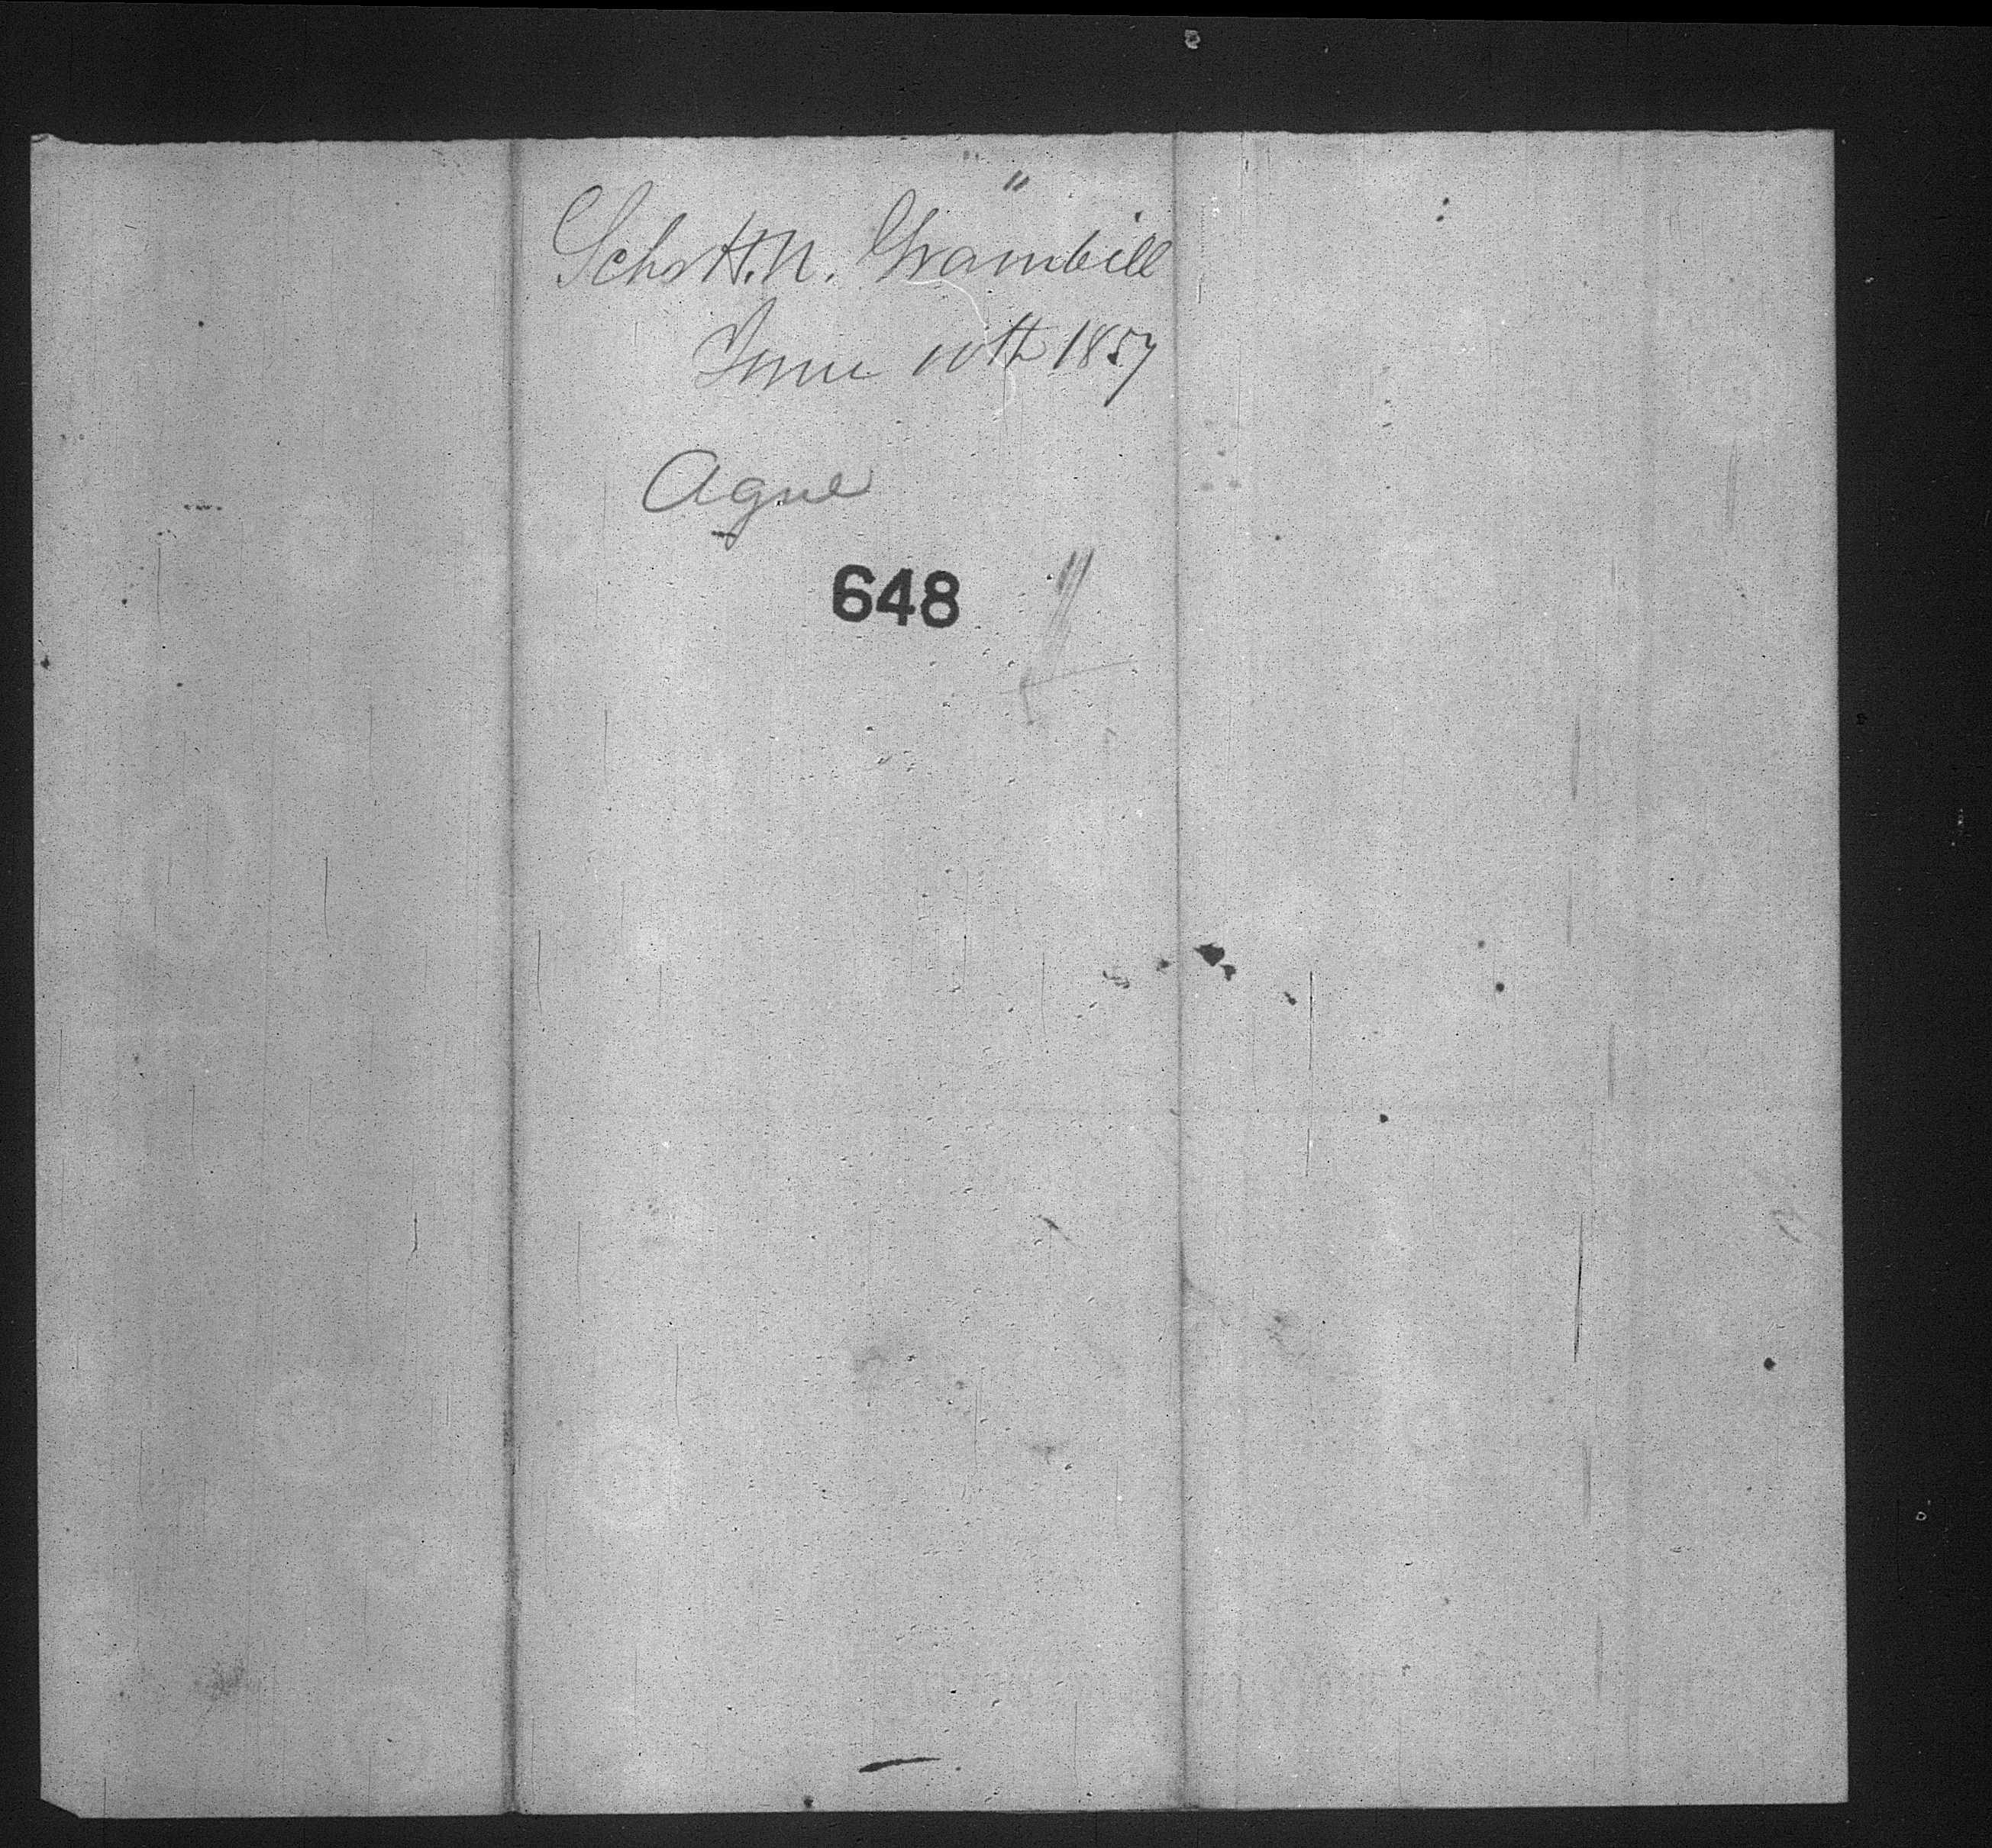 Schott. N. Grambill
June 10th 1857
Ague
648